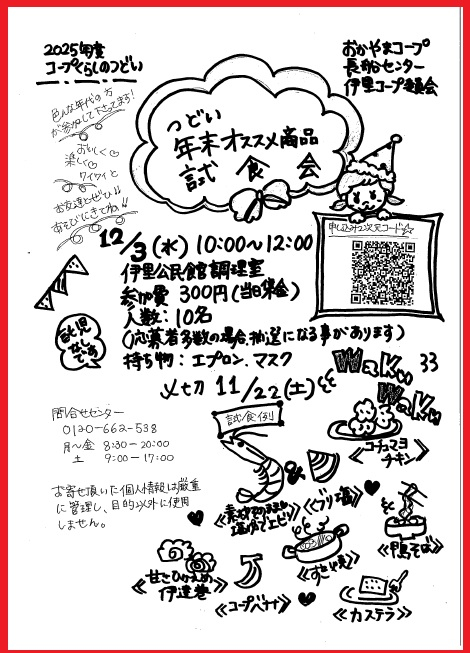 2025年度
コープくらしのつどい
おかやまコープ
長船センター
伊里コープ委員会
色んな年代の方
が参加して下さってます!
おいしく
楽しく
ワイワイと
お友達とぜひ!!
あそびにきてね!!
つどい
年末オススメ商品
試食会
申し込み2次元コード☆
12/3(水) 10:00〜12:00
伊里公民館調理室
参加費 300円(当日集金)
人数:10名
(応募者多数の場合、抽選になる事があります)
持ち物:エプロン、マスク
託児
なしで
す
〆切 11/22(土)
WaKu
WaKu
問合せセンター
0120-662-538
月〜金 8:30-20:00
土 9:00-17:00
お寄せ頂いた個人情報は厳重
に管理し、目的以外に使用
しません。
試食例
《コチュマヨ
チキン》
塩ゆでエビ》
《鴨そば》
《甘さひかえめ
伊達巻》
《コープバナナ》
《カステラ》